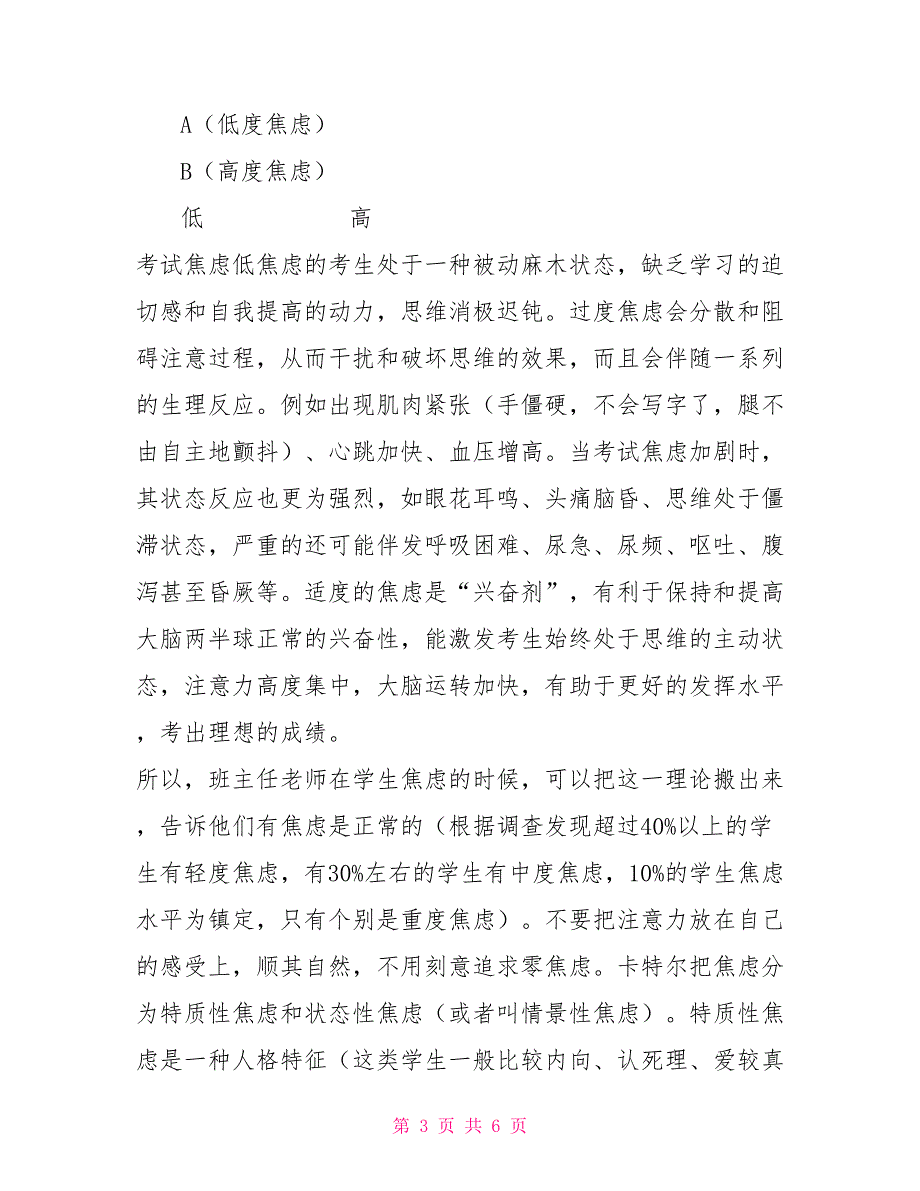 A（低度焦虑）
B（高度焦虑）
低 高
考试焦虑低焦虑的考生处于一种被动麻木状态，缺乏学习的迫
切感和自我提高的动力，思维消极迟钝。过度焦虑会分散和阻
碍注意过程，从而干扰和破坏思维的效果，而且会伴随一系列
的生理反应。例如出现肌肉紧张（手僵硬，不会写字了，腿不
由自主地颤抖）、心跳加快、血压增高。当考试焦虑加剧时，
其状态反应也更为强烈，如眼花耳鸣、头痛脑昏、思维处于僵
滞状态，严重的还可能伴发呼吸困难、尿急、尿频、呕吐、腹
泻甚至昏厥等。适度的焦虑是“兴奋剂”，有利于保持和提高
大脑两半球正常的兴奋性，能激发考生始终处于思维的主动状
态，注意力高度集中，大脑运转加快，有助于更好的发挥水平
，考出理想的成绩。
所以，班主任老师在学生焦虑的时候，可以把这一理论搬出来
，告诉他们有焦虑是正常的（根据调查发现超过40%以上的学
生有轻度焦虑，有30%左右的学生有中度焦虑，10%的学生焦虑
水平为镇定，只有个别是重度焦虑）。不要把注意力放在自己
的感受上，顺其自然，不用刻意追求零焦虑。卡特尔把焦虑分
为特质性焦虑和状态性焦虑（或者叫情景性焦虑）。特质性焦
虑是一种人格特征（这类学生一般比较内向、认死理、爱较真
第 3 页 共 6 页